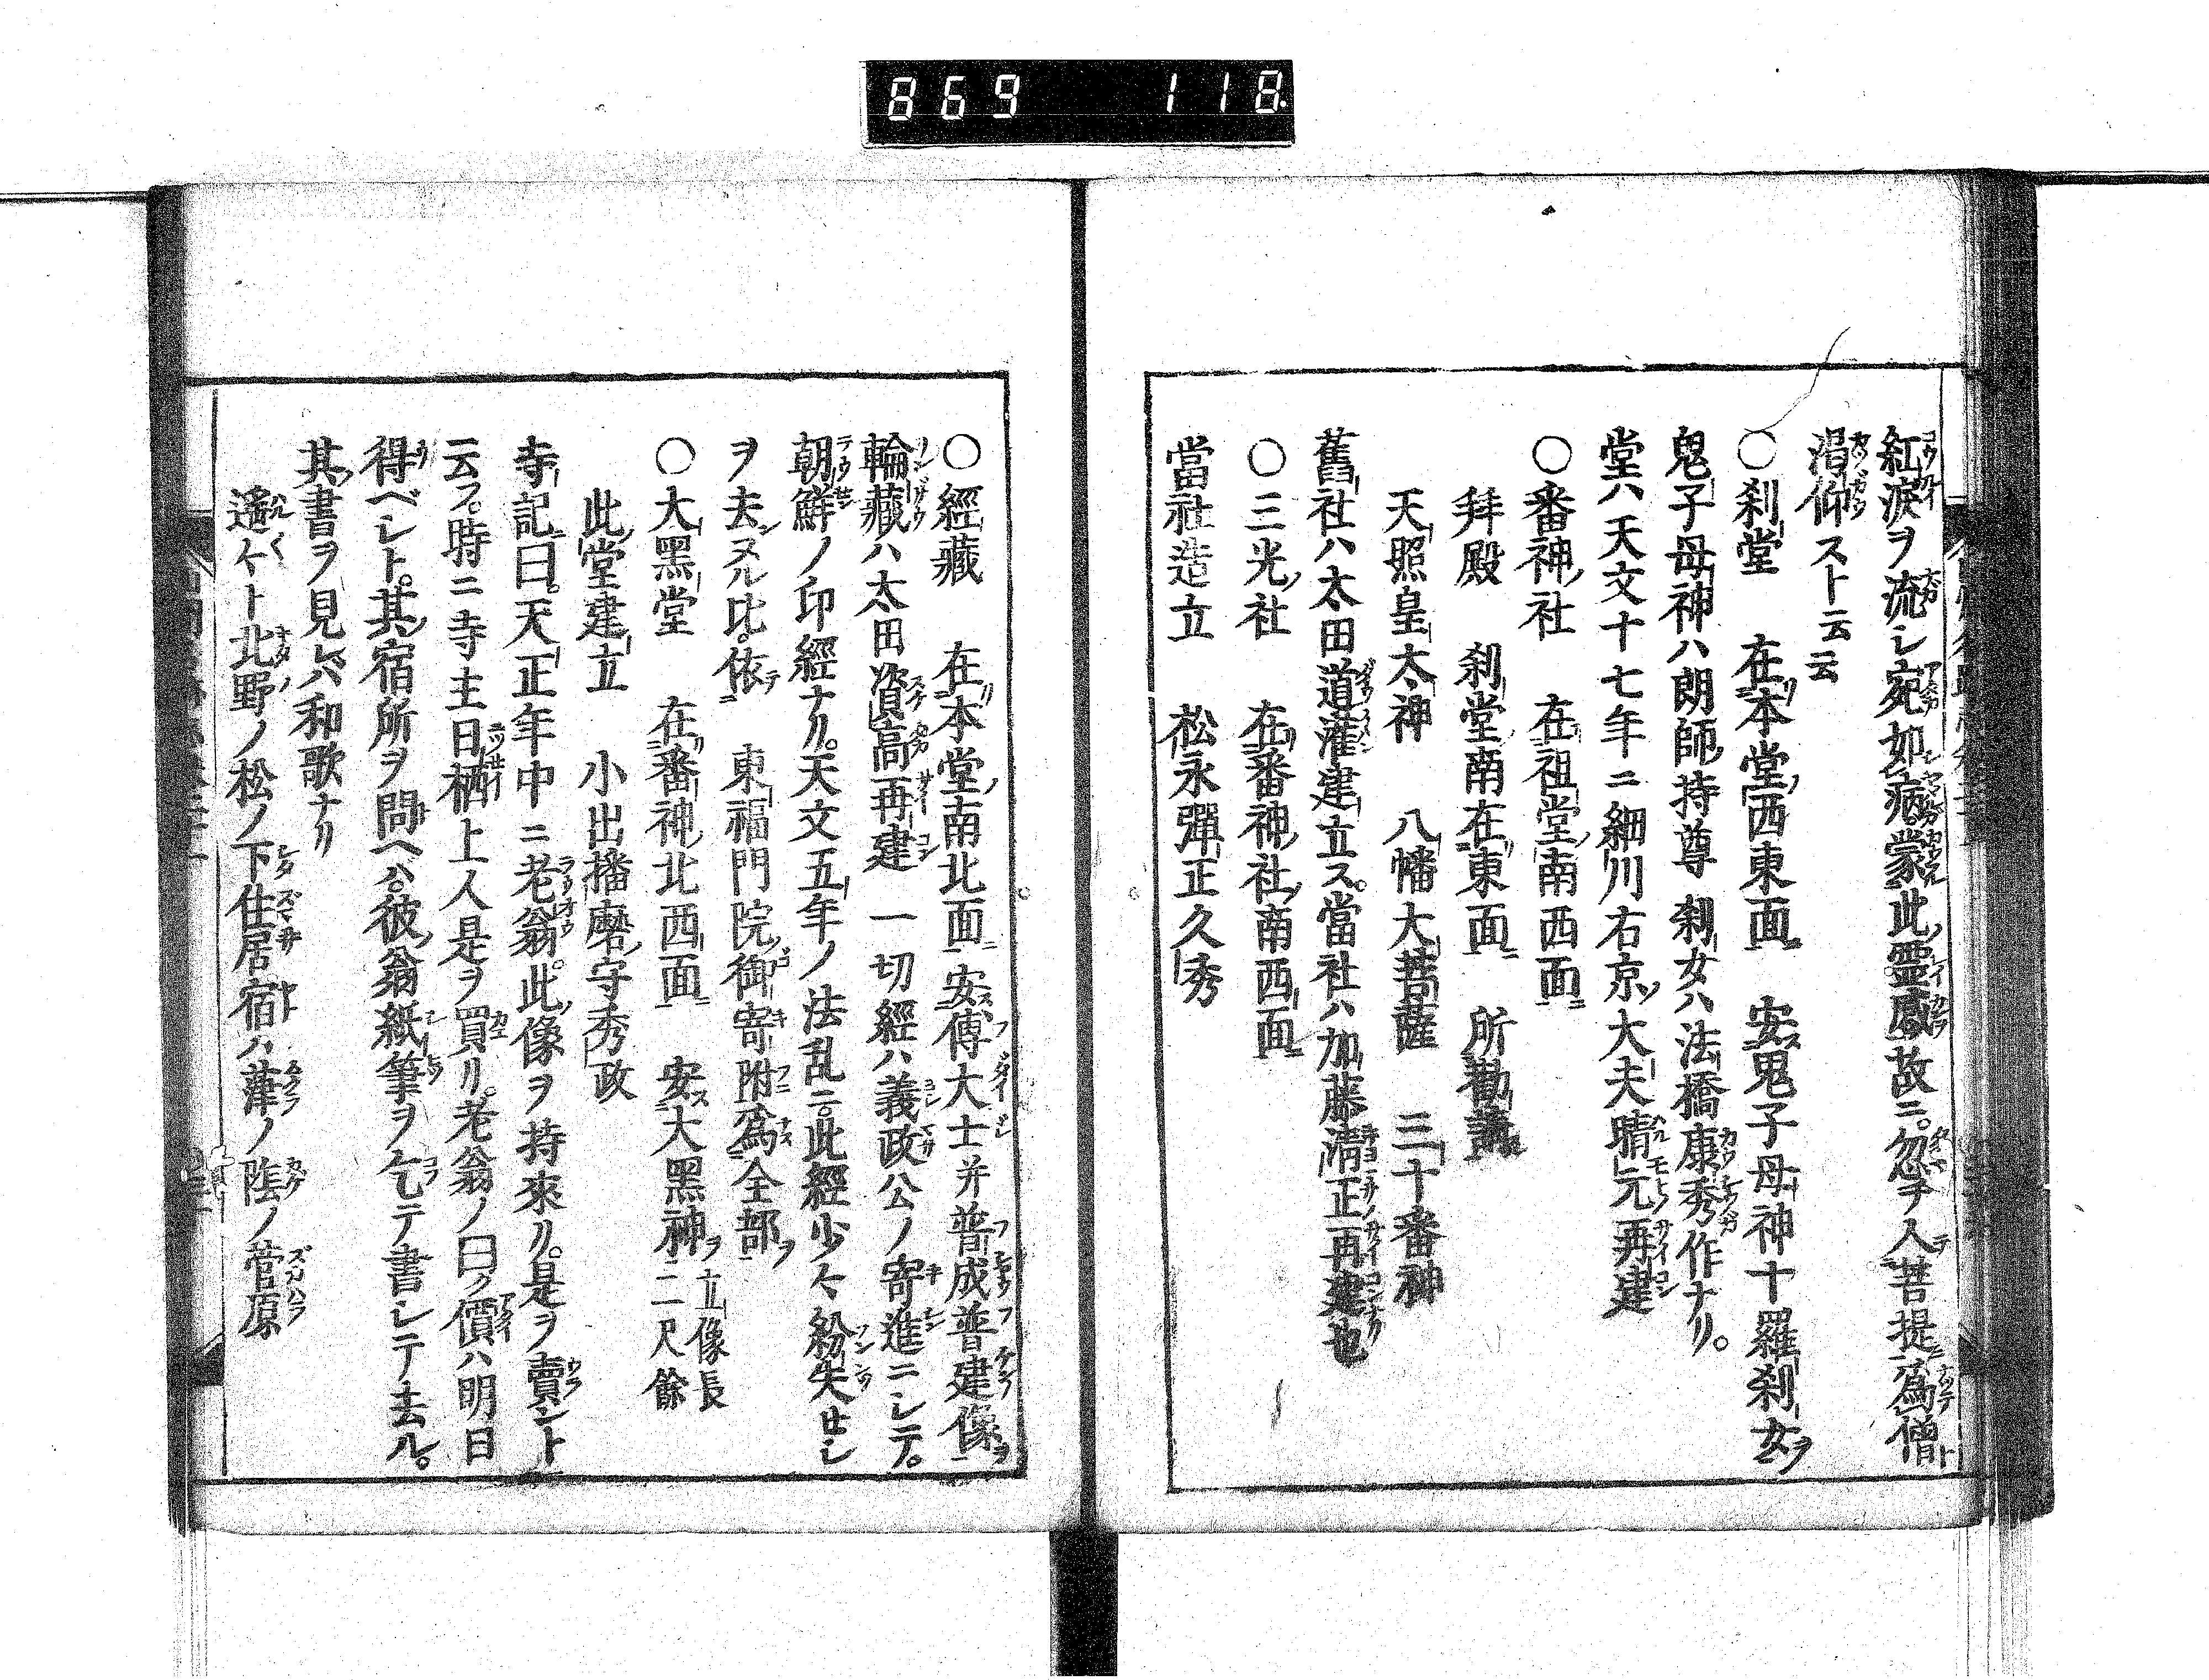 869 118
紅涙ヲ流シ宛如病蒙此靈感故ニ。忽チ入菩提為僧
渇仰スト云云
〇刹堂 在本堂西東面 安鬼子母神十羅刹女ヲ
鬼子母神ハ朗師持尊 刹女ハ法橋康秀作ナリ。
堂ハ天文十七年ニ細川右京大夫晴元再建
〇番神社 在祖堂南西面
拜殿 刹堂南在東面 所勸請
天照皇太神 八幡大菩薩 三十番神
舊社ハ太田道灌建立ス。當社ハ加藤清正再建也
〇三光社 在番神社南西面
當社造立 松永彈正久秀
〇經藏 在本堂南北面 安傅大士并普成普建像ヲ
輪藏ハ太田資高再建 一切經ハ義政公ノ寄進ニシテ。
朝鮮ノ印經ナリ。天文五年ノ法乱ニ。此經少々紛失セシ
ヲ以 比。依 東福門院御寄附為全部ヲ
〇大黑堂 在番神北西面 安大黑神ヲ立像長二尺餘
此堂建立 小出播磨守秀政
寺記曰。天正年中ニ老翁。此像ヲ持來リ。是ヲ賣ント
云フ。時ニ寺主日栖上人是ヲ買リ。老翁ノ曰ク價ハ明日
得ベシト。其宿所ヲ問ヘバ。彼翁紙筆ヲ乞テ書シテ去ル。
其書ヲ見レバ和歌ナリ
遙々ト北野ノ松ノ下住居宿ハ葎ノ陰ノ菅原